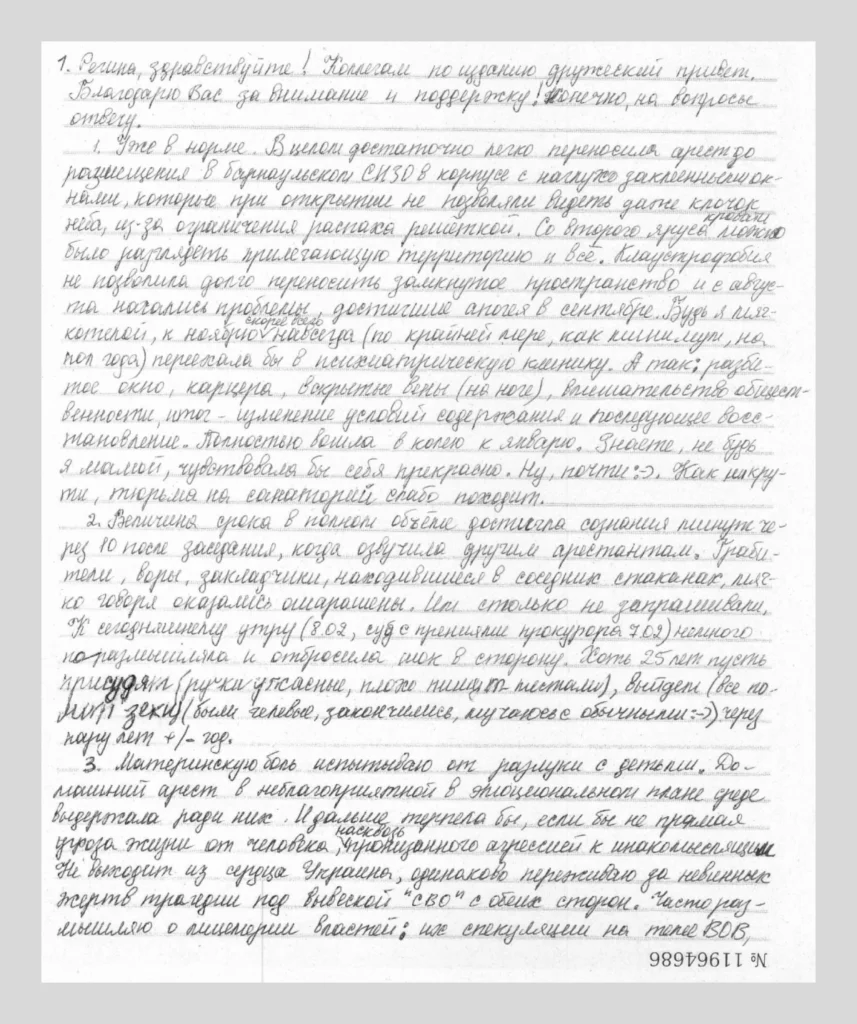 1. Регина, здравствуйте! Коллегам по изданию дружеский привет.
Благодарю Вас за внимание и поддержку! Конечно, на вопросы
отвечу.
1. Уже в норме. В целом достаточно легко переносила арест до
размещения в барнаульском СИЗО в корпусе с наглухо заклеенными ок-
нами, которые при открытии не позволяли видеть даже клочок
неба, из-за ограничения распаха решёткой. Со второго яруса кровати можно
было разглядеть прилегающую территорию и всё. Клаустрофобия
не позволила долго переносить замкнутое пространство и с авгус-
та начались проблемы, достигшие апогея в сентябре. Будь я мяг-
котелой, к ноябрю скорее всего навсегда (по крайней мере, как минимум, на
пол года) переехала бы в психиатрическую клинику. А так: разби-
тое окно, карцера, вскрытые вены (на ноге), вмешательство общест-
венности, итог - изменение условий содержания и последующее восс-
тановление. Полностью вошла в колею к январю. Знаете, не будь
я мамой, чувствовала бы себя прекрасно. Ну, почти :-). Как ни кру-
ти, тюрьма на санаторий слабо походит.
2. Величина срока в полном объёме достигла сознания минут че-
рез 10 после заседания, когда озвучила другим арестантам. Граби-
тели, воры, закладчики, находившиеся в соседних стаканах, мяг-
ко говоря оказались ошарашены. Им столько не запрашивали.
К сегодняшнему утру (8.02, суд с прениями прокурора 7.02) немного
поразмышляла и отбросила шок в сторону. Хоть 25 лет пусть
присудят (ручки ужасные, плохо пишут местами), выйдем (все по-
лит зеки) (были гелевые, закончились, мучаюсь с обычными :-)) через
пару лет +/- год.
3. Материнскую боль испытываю от разлуки с детьми. До-
машний арест в неблагоприятной в эмоциональном плане среде
выдержала ради них. И дальше терпела бы, если бы не прямая
угроза жизни от человека, насквозь пронизанного агрессией к инакомыслящим
Не выходит из сердца Украина, одинаково переживаю за невинных
жертв трагедии под вывеской "СВО" с обеих сторон. Часто раз-
мышляю о лицемерии властей: их спекуляции на теме ВОВ,
№ 11964686